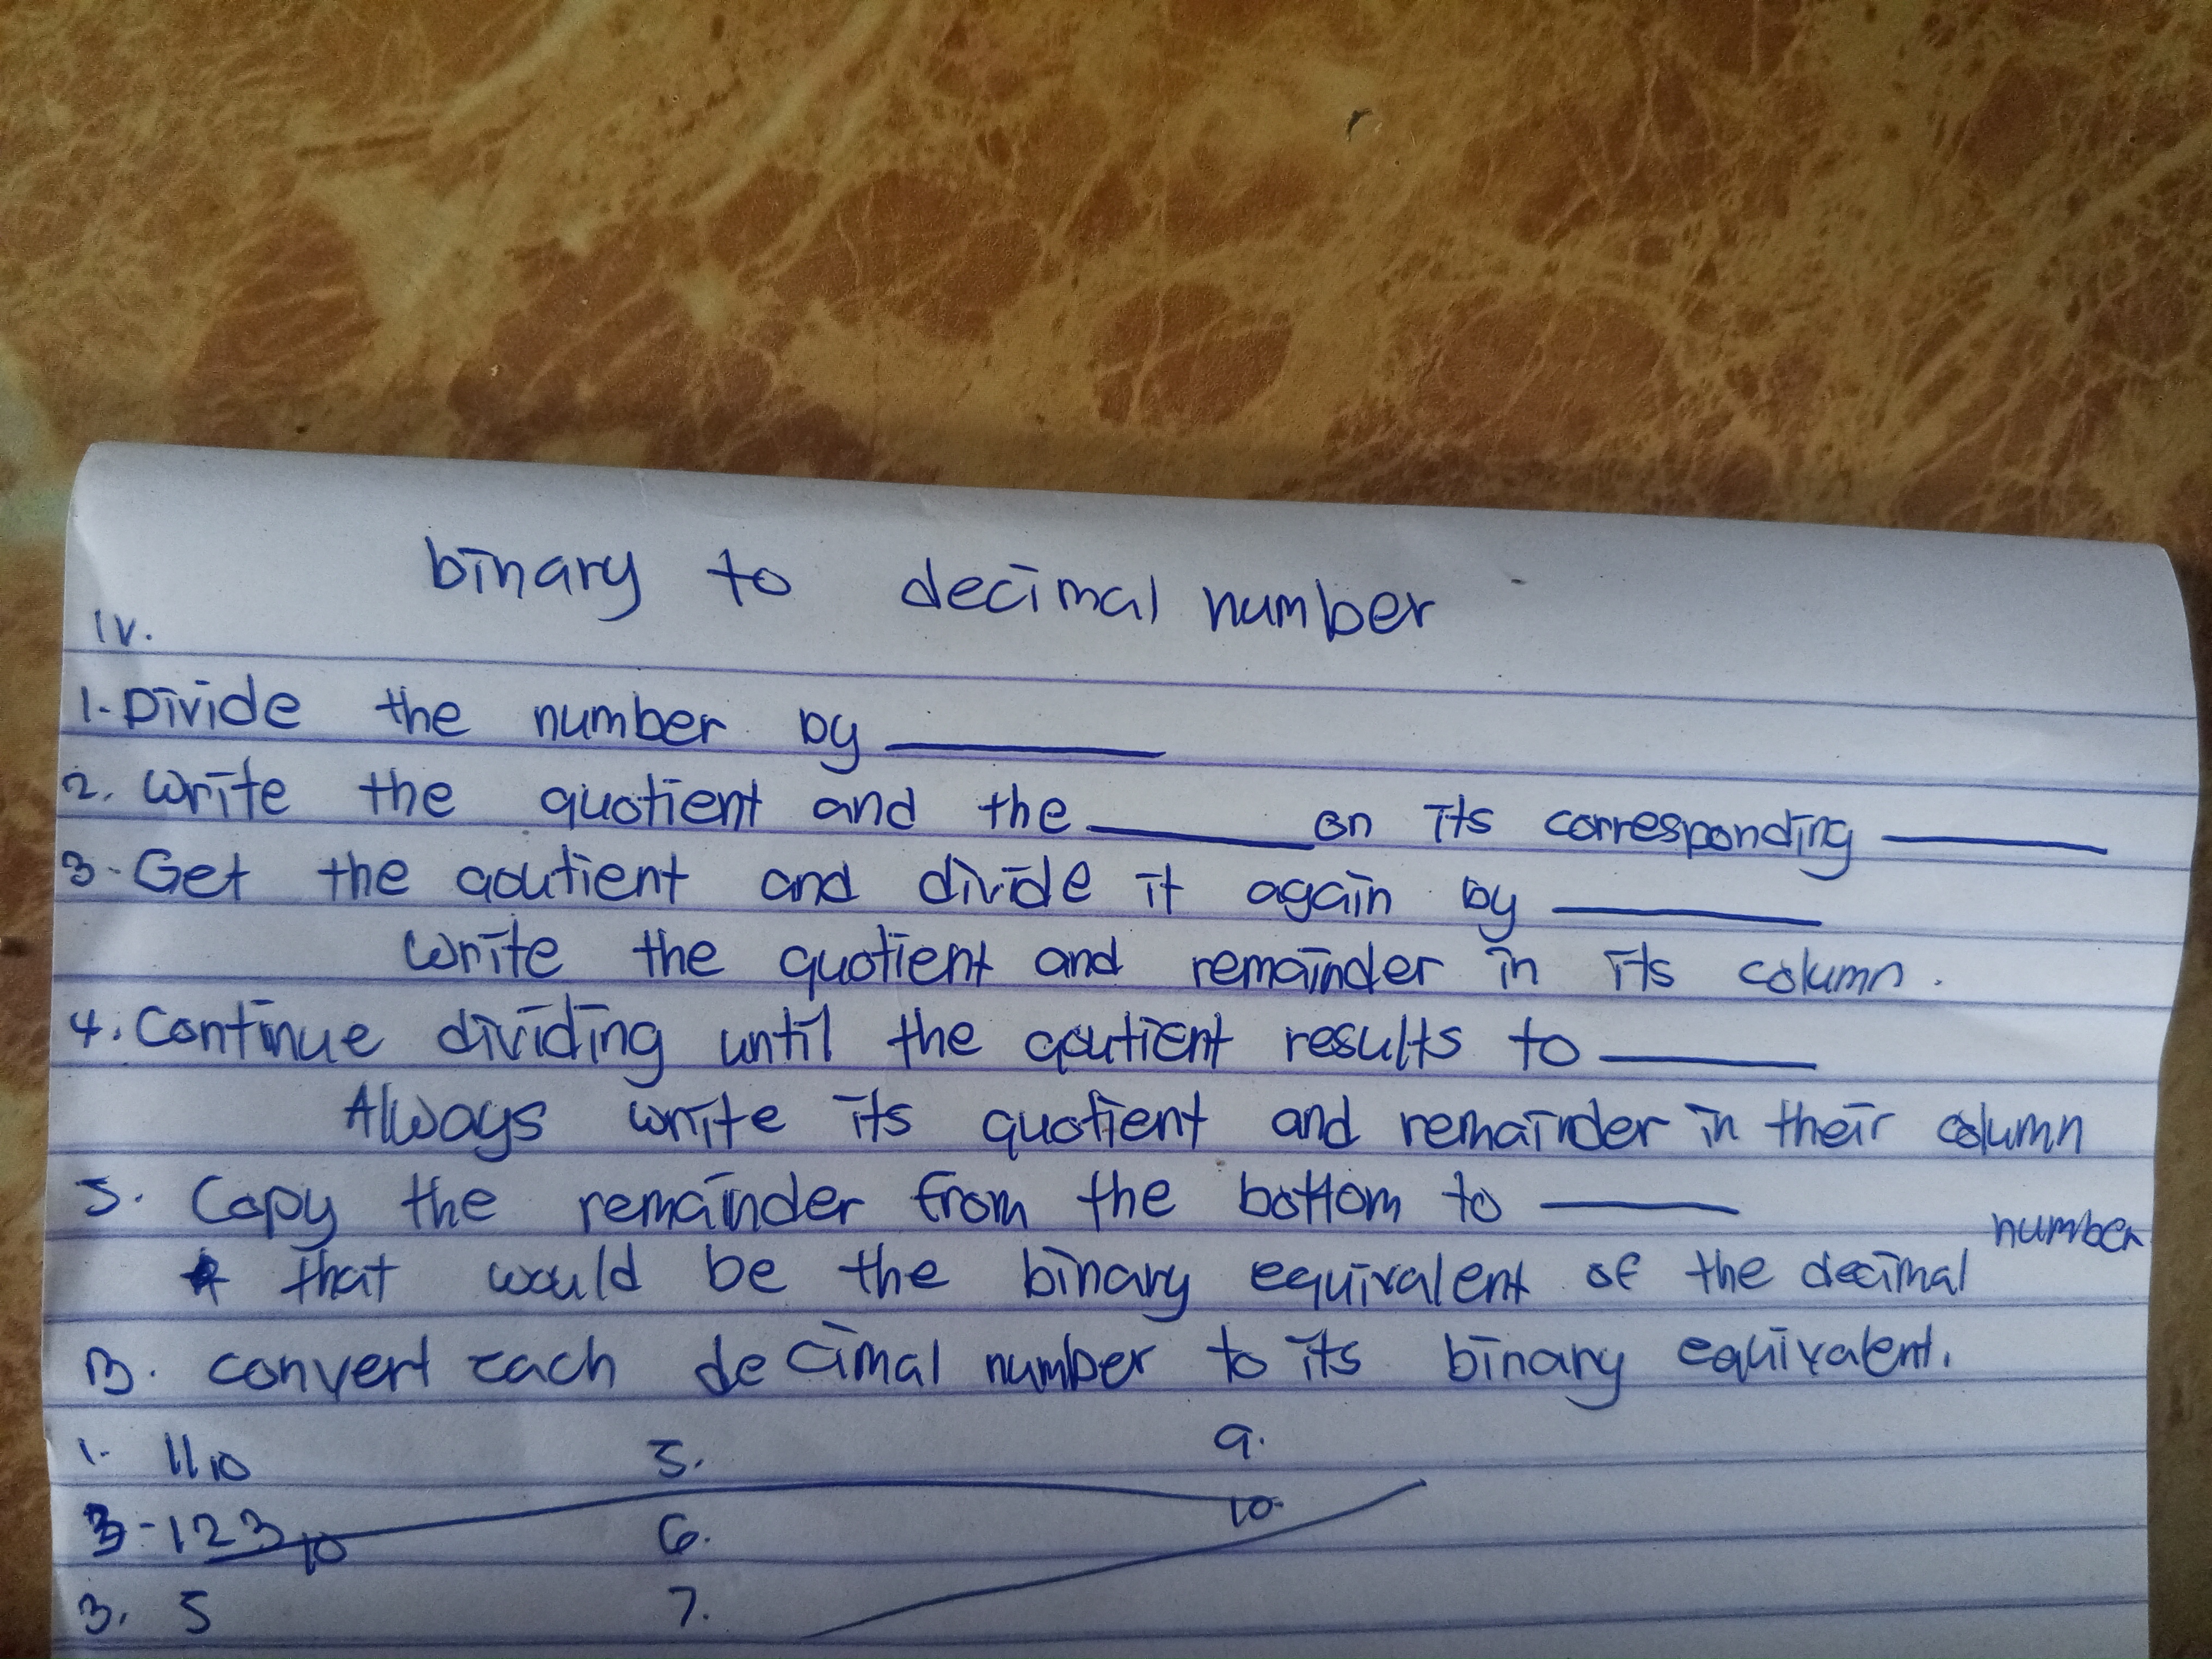 binary to decimal number
IV.
1. Divide the number by ______
2. Write the quotient and the ______ on its corresponding ______
3. Get the qoutient and divide it again by ______
Write the quotient and remainder in its column.
4. Continue dividing until the qoutient results to ______
Always write its quotient and remainder in their column
5. Copy the remainder from the bottom to ______
that would be the binary equivalent of the decimal number
B. convert each decimal number to its binary equivalent.
1. 11₁₀ 5. 9.
3. 123₁₀ 6. 10.
3. 5 7.